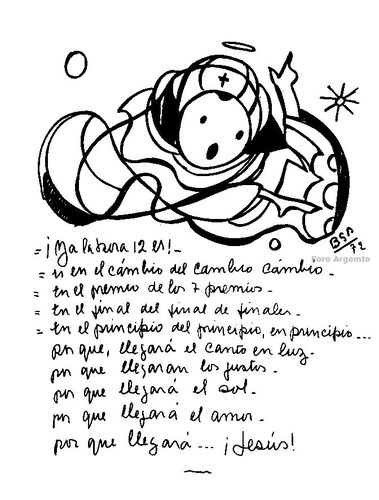 BSP
72
Foro Argemto
= ¡Ya la hora 12 es! -
= es en el cámbio del cambio cámbio -
= En el premio de los 7 premios -
= En el final del final de finales -
= En el principio del principio, en principio...
por que, llegará el canto en luz -
por que llegaran los justos -
por que llegará el sol -
por que llegará el amor -
por que llegará... ¡Jesús!